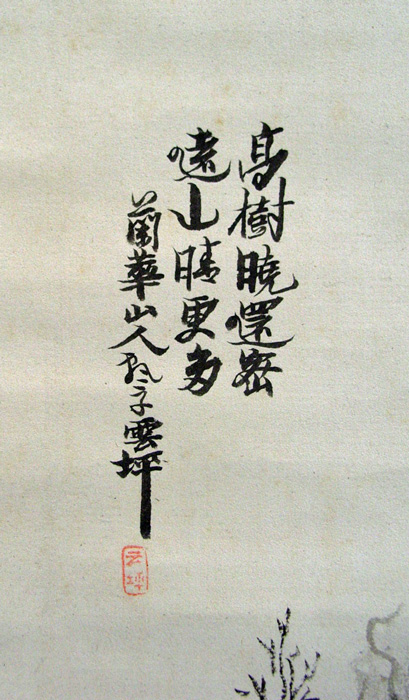 高樹曉還密
遠山晴更多
蘭華山人雲坪
云坪